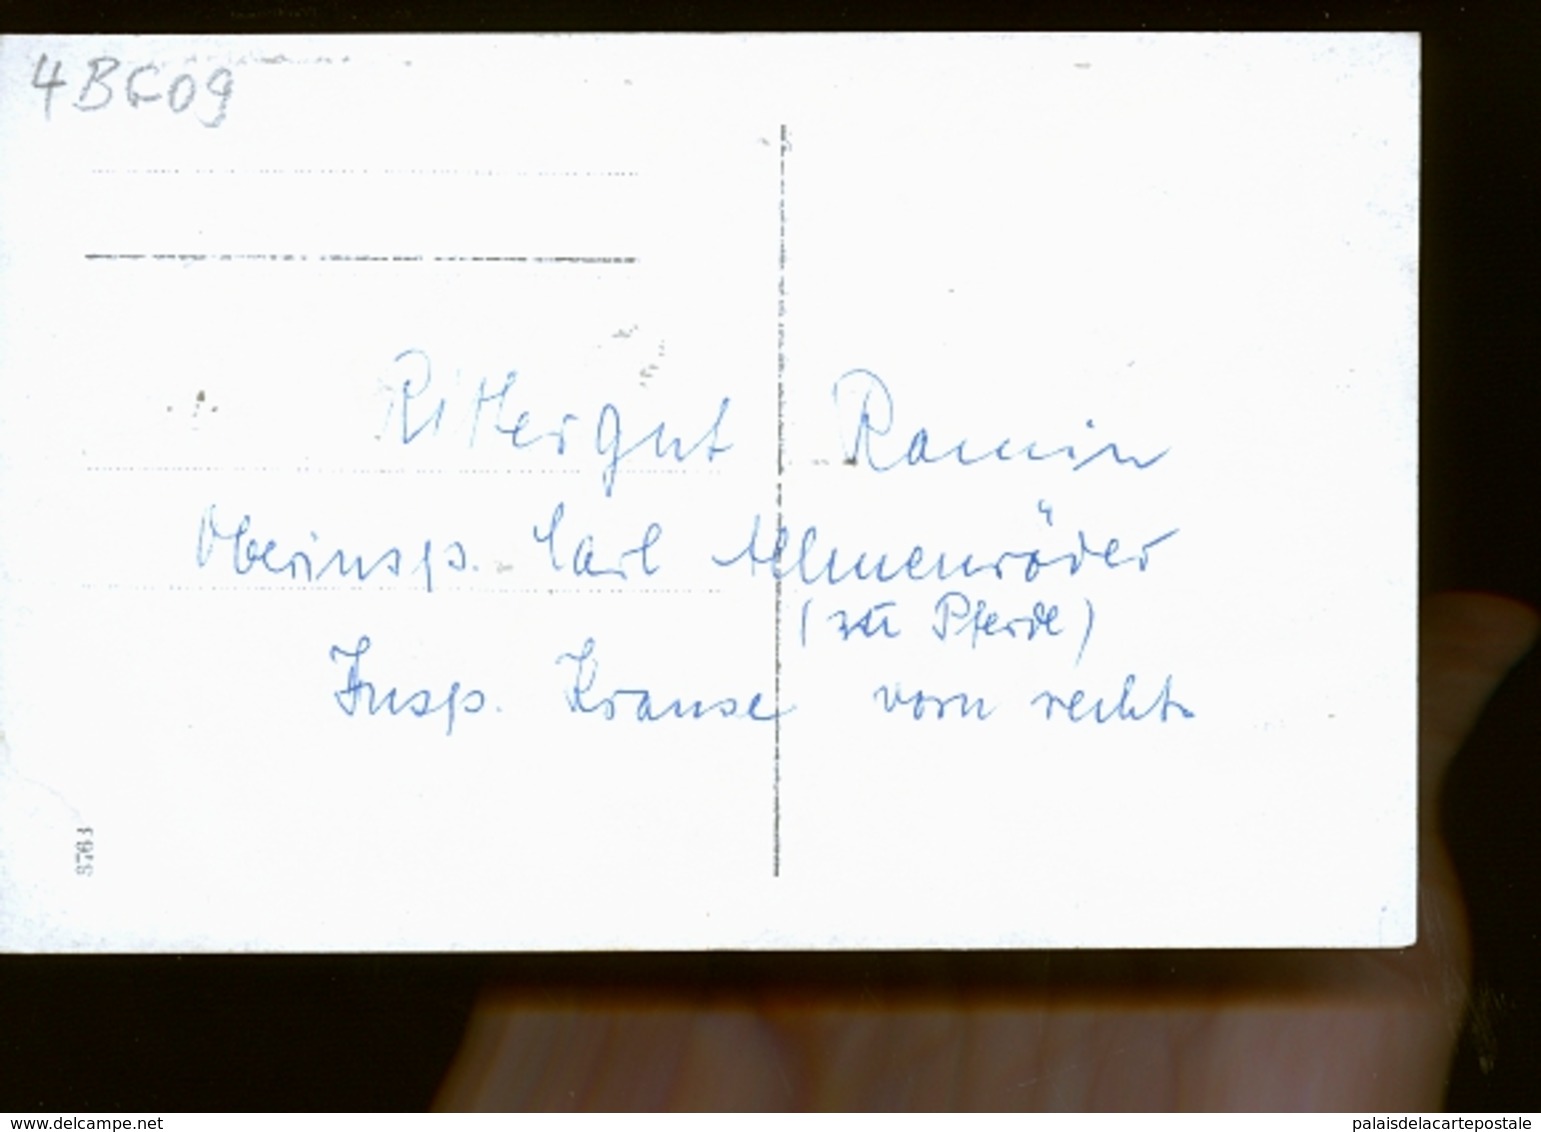 4BG09
Rittergut Ramin
Oberinsp. Carl Allmenröder
(zu Pferde)
Insp. Krause vorn rechts
3763
www.delcampe.net
palaisdelacartepostale